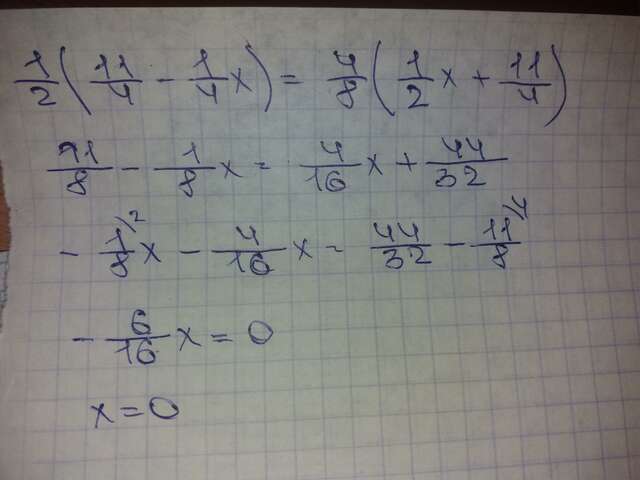 1/2 ( 11/4 - 1/4 x ) = 4/8 ( 1/2 x + 11/4 )
11/8 - 1/8 x = 4/16 x + 44/32
- 1/8 /2 x - 4/16 x = 44/32 - 11/8 /4
- 6/16 x = 0
x = 0